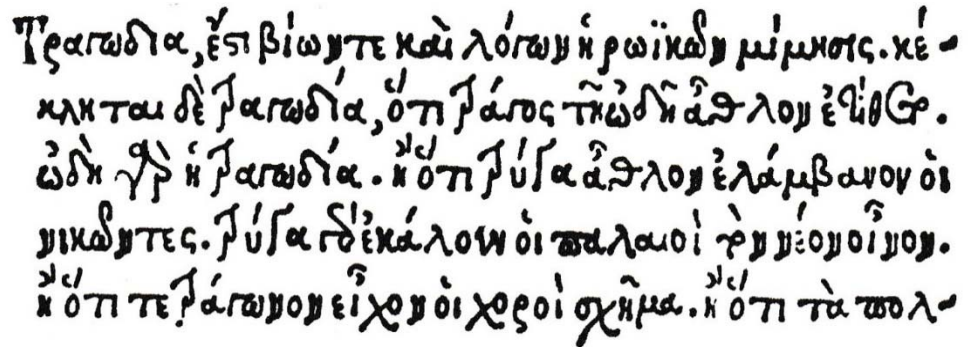 Τραγωδία, ἔστι βίων τε καὶ λόγων ἡρωϊκῶν μίμησις. κέ-
κληται δὲ τραγωδία, ὅτι τράγος τῇ ὠδῇ ἆθλον ἐτίθετο.
ὠδὴ γὰρ ἡ τραγωδία. ἢ ὅτι τρύγα ἆθλον ἐλάμβανον οἱ
νικῶντες. τρύγα γὰρ ἐκάλουν οἱ παλαιοὶ τὸν νέον οἶνον.
ἢ ὅτι τετράγωνον εἶχον οἱ χοροὶ σχῆμα. ἢ ὅτι τὰ πολ-